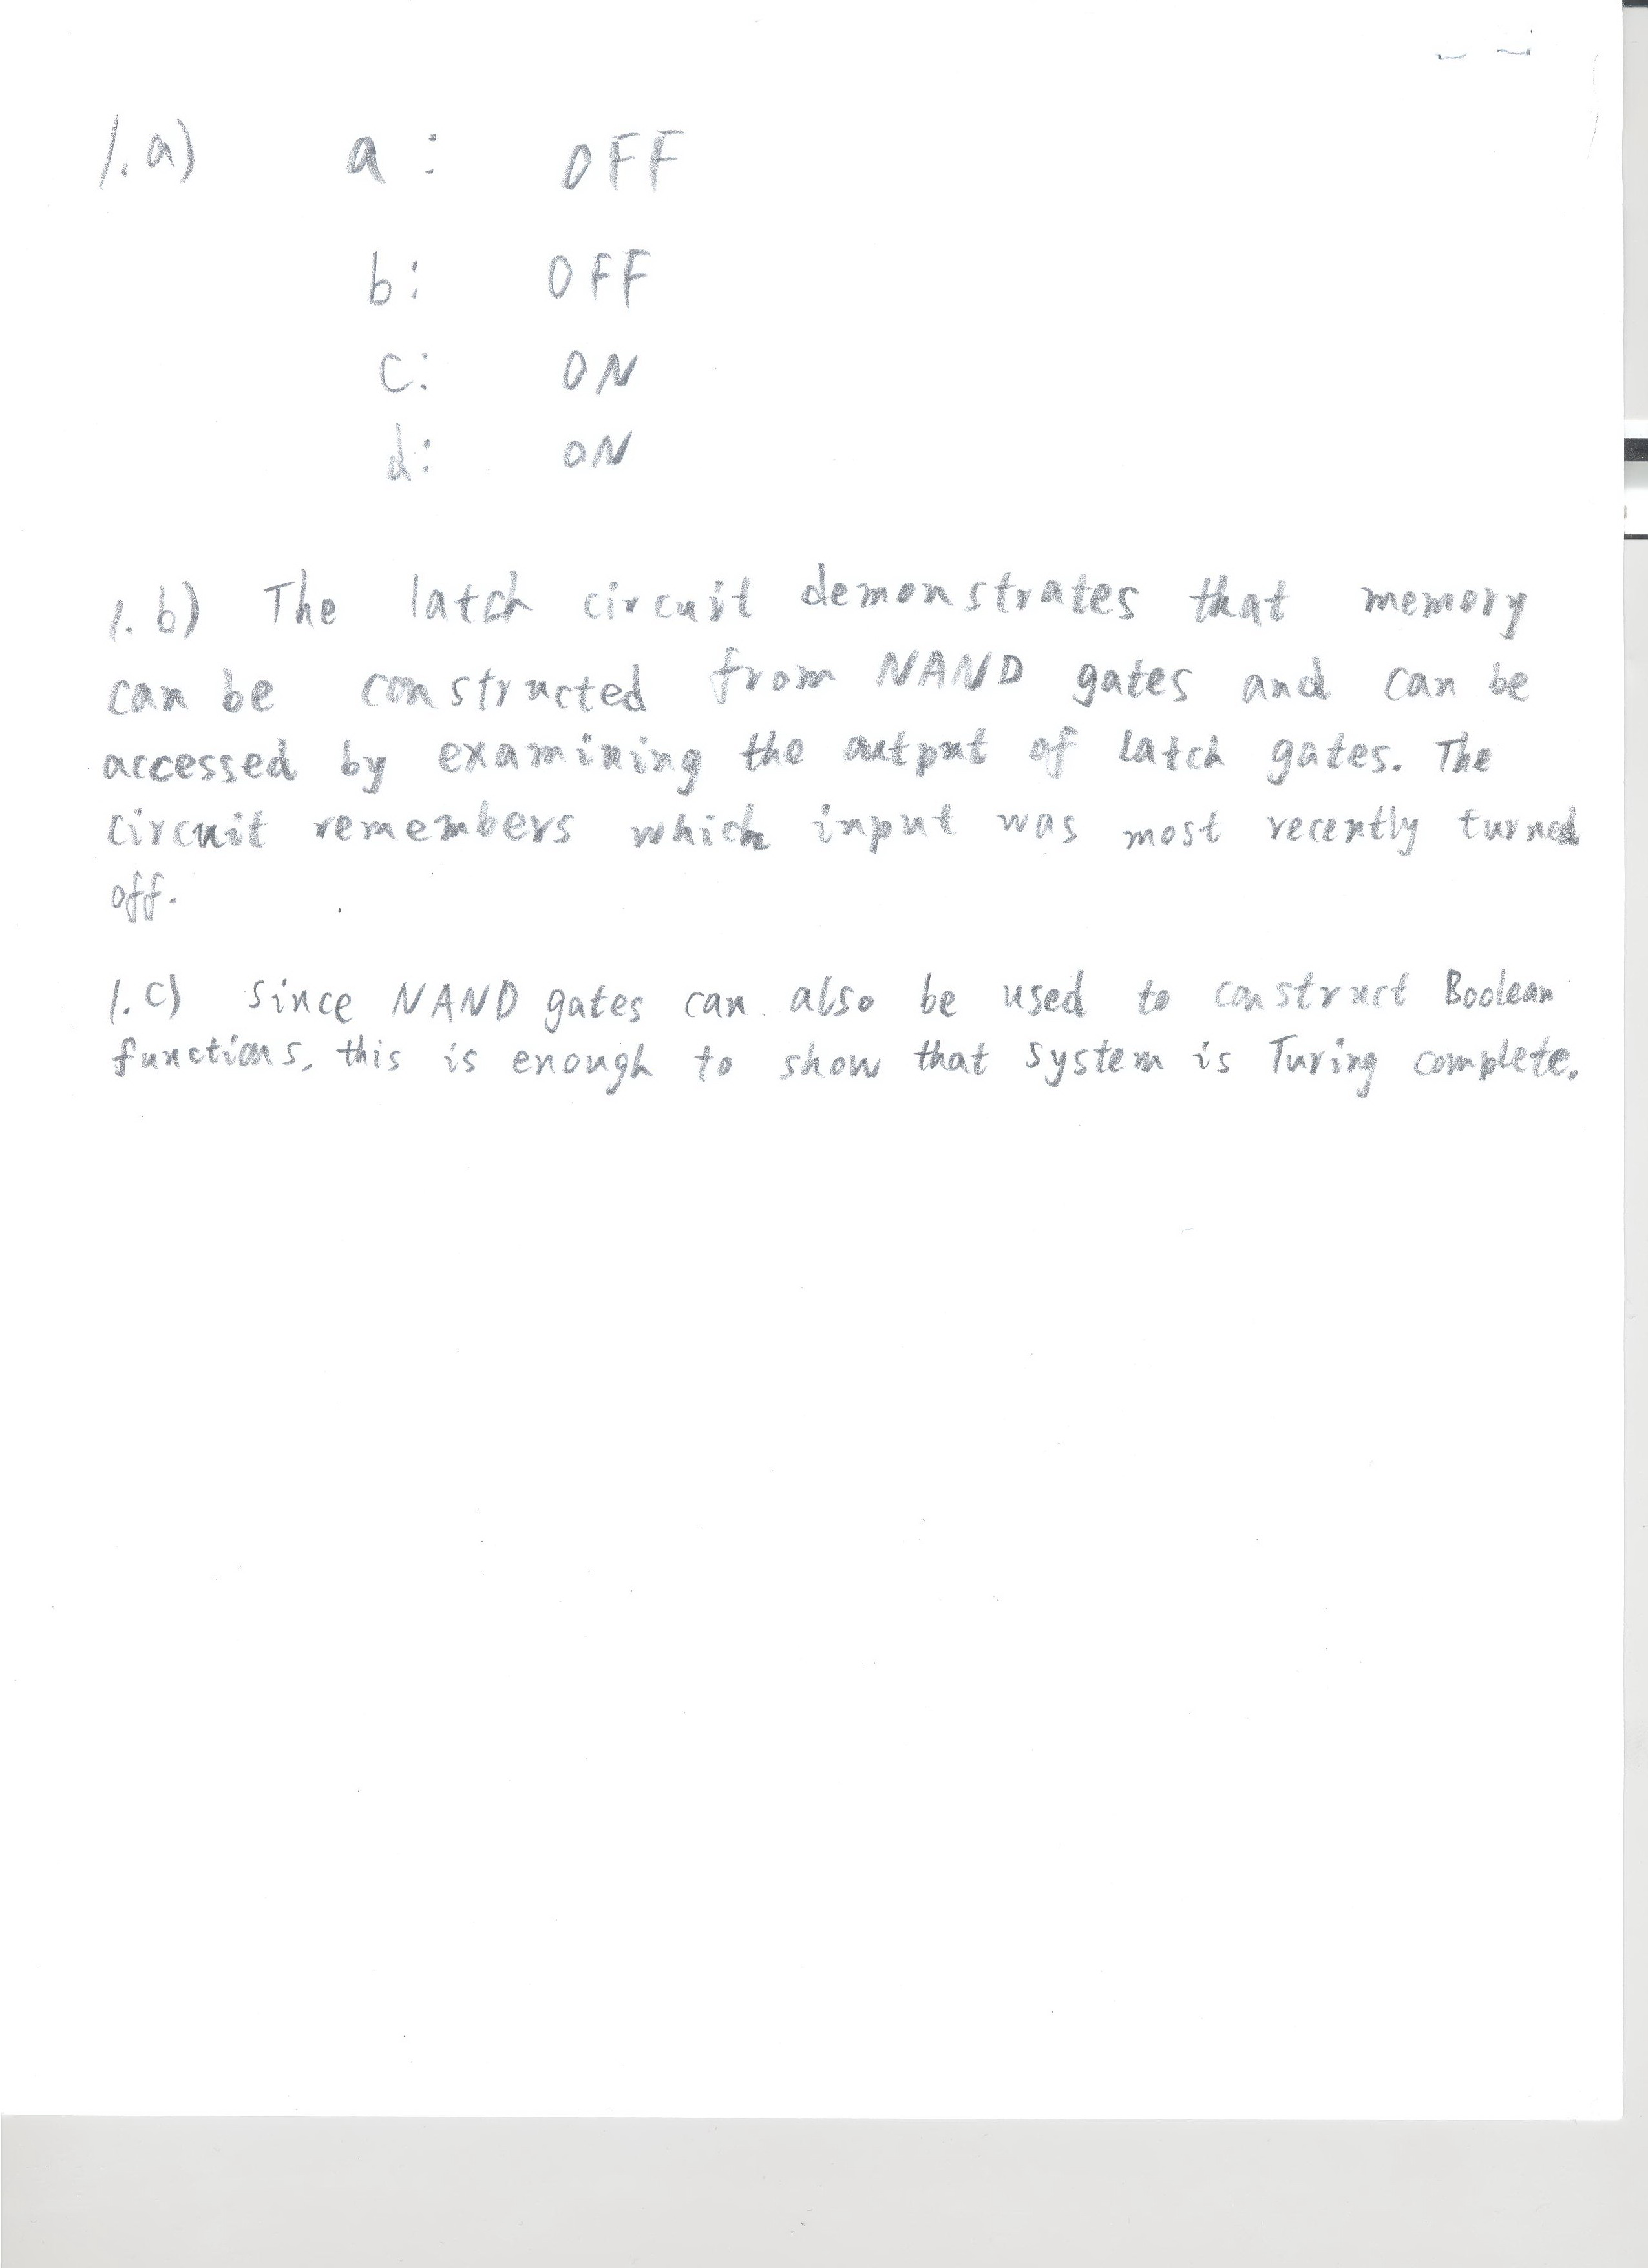 1.a) a: OFF
b: OFF
c: ON
d: ON
1.b) The latch circuit demonstrates that memory
can be constructed from NAND gates and can be
accessed by examining the output of latch gates. The
circuit remembers which input was most recently turned
off.
1.c) Since NAND gates can also be used to construct Boolean
functions, this is enough to show that system is Turing complete.